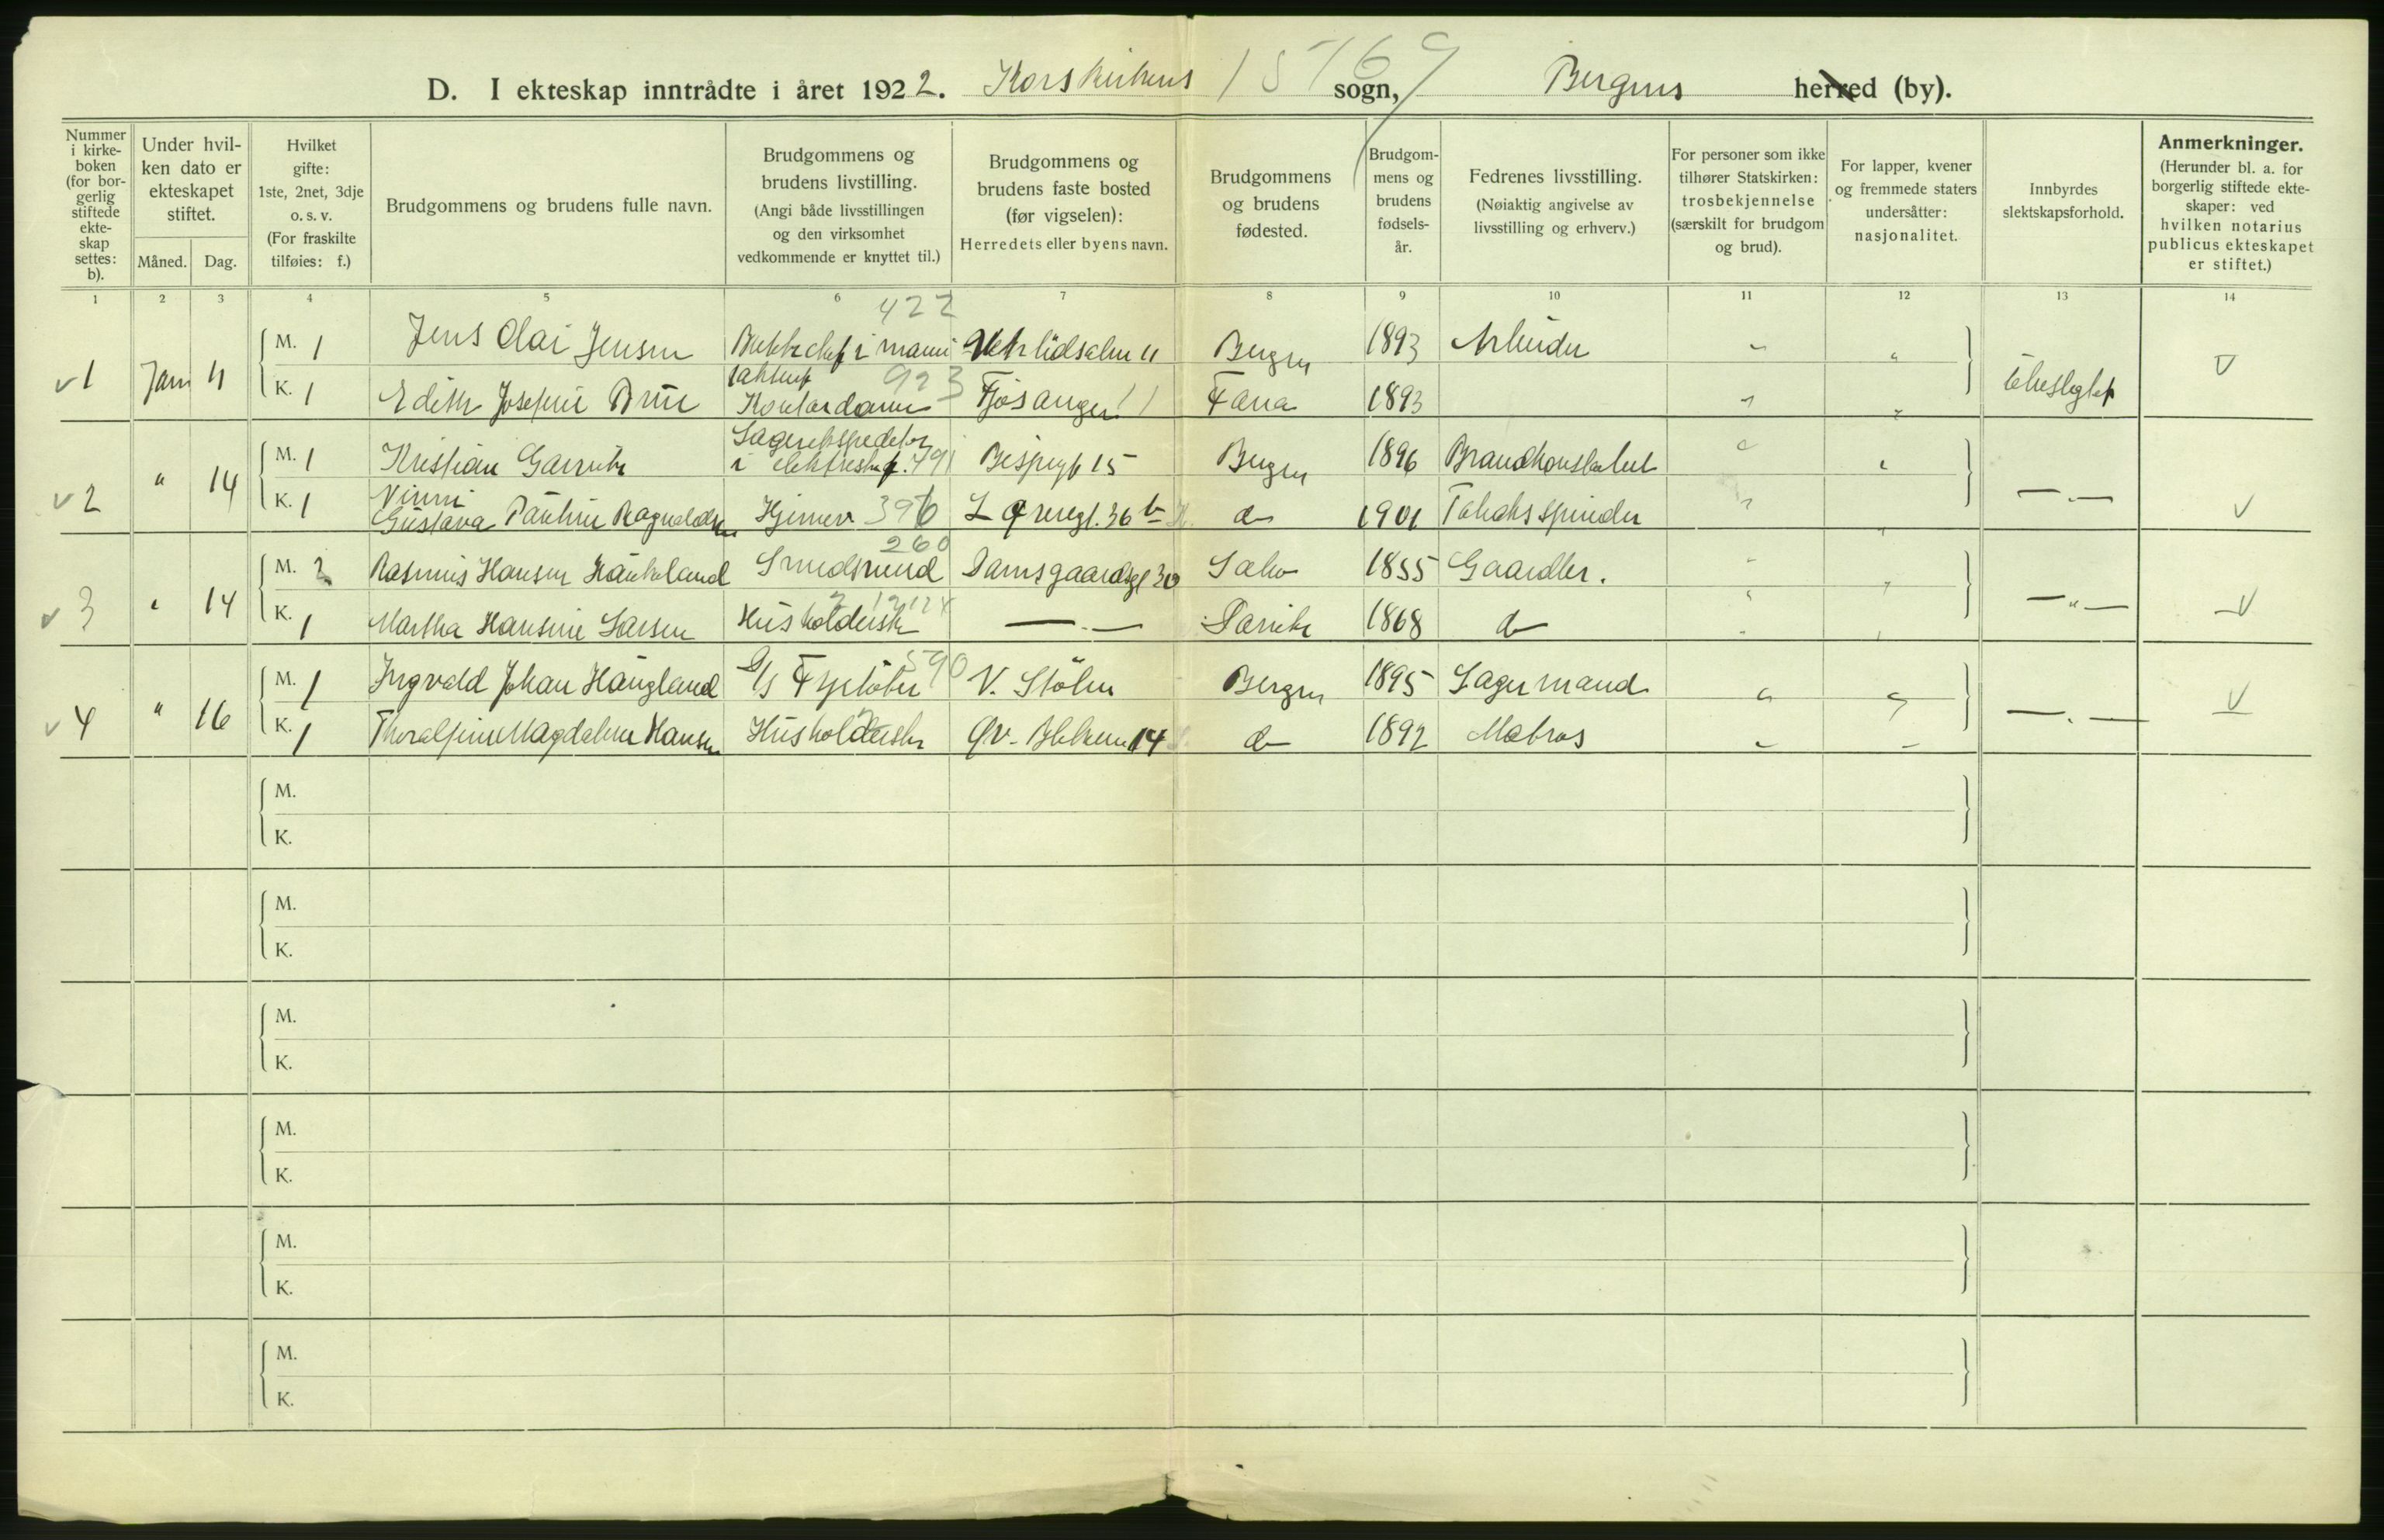 D. I ekteskap inntrådte i året 1922. Korskirkens sogn, Bergens herred (by).
15769
Nummer i kirke-boken (for bor-gerlig stiftede ekte-skap settes: b).
Under hvil-ken dato er ekteskapet stiftet.
Måned. Dag.
Hvilket gifte: 1ste, 2net, 3dje o. s. v. (For fraskilte tilføies: f.)
Brudgommens og brudens fulle navn.
Brudgommens og brudens livstilling. (Angi både livsstillingen og den virksomhet vedkommende er knyttet til.)
Brudgommens og brudens faste bosted (før vigselen): Herredets eller byens navn.
Brudgommens og brudens fødested.
Brudgom-mens og brudens fødsels-år.
Fedrenes livsstilling. (Nøiaktig angivelse av livsstilling og erhverv.)
For personer som ikke tilhører Statskirken: trosbekjennelse (særskilt for brudgom og brud).
For lapper, kvener og fremmede staters undersåtter: nasjonalitet.
Innbyrdes slektskapsforhold.
Anmerkninger. (Herunder bl. a. for borgerlig stiftede ekte-skaper: ved hvilken notarius publicus ekteskapet er stiftet.)
1 2 3 4 5 6 7 8 9 10 11 12 13 14
422
v 1 Jan 11 M. 1 Jens Olai Jensen i manu Bergen 1893 Arbeider " " V
923
K. 1 Edith Josefine Kontordame Fjøsanger Fana 1893 " "
v 2 " 14 M. 1 Kristian Lagerekspeditør i 791 Bispegt 15 Bergen 1896 Brandkonstabel " "
K. 1 Vinni Gustava Pauline Ragnvaldsen Hjemmev 396 36 b do 1901 Tobaksspinder " " — " — V
260
v 3 " 14 M. 2 Rasmus Hansen Haukeland Smedsvend Damsgaardsgt 30 1855 Gaardbr. " "
K. 1 Martha Hansine Larsen Husholderske — " — 1868 do " " — " — V
590
v 4 " 16 M. 1 Ingvald Johan Haugland D/S Fyrbøter V. Stølen Bergen 1895 Lagermand " " V
K. 1 Magdalene Hansen Husholderske 14 do 1892 Matros " " — " —
M.
K.
M.
K.
M.
K.
M.
K.
M.
K.
M.
K.